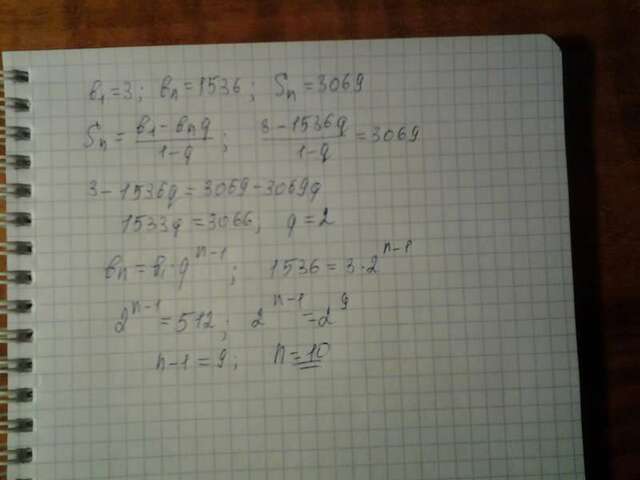 в₁=3; вₙ=1536; Sₙ=3069
Sₙ = (в₁ - вₙq)/(1-q); (3 - 1536q)/(1-q) = 3069
3 - 1536q = 3069 - 3069q
1533q = 3066; q = 2
вₙ = в₁·qⁿ⁻¹; 1536 = 3·2ⁿ⁻¹
2ⁿ⁻¹ = 512; 2ⁿ⁻¹ = 2⁹
n-1 = 9; n = 10